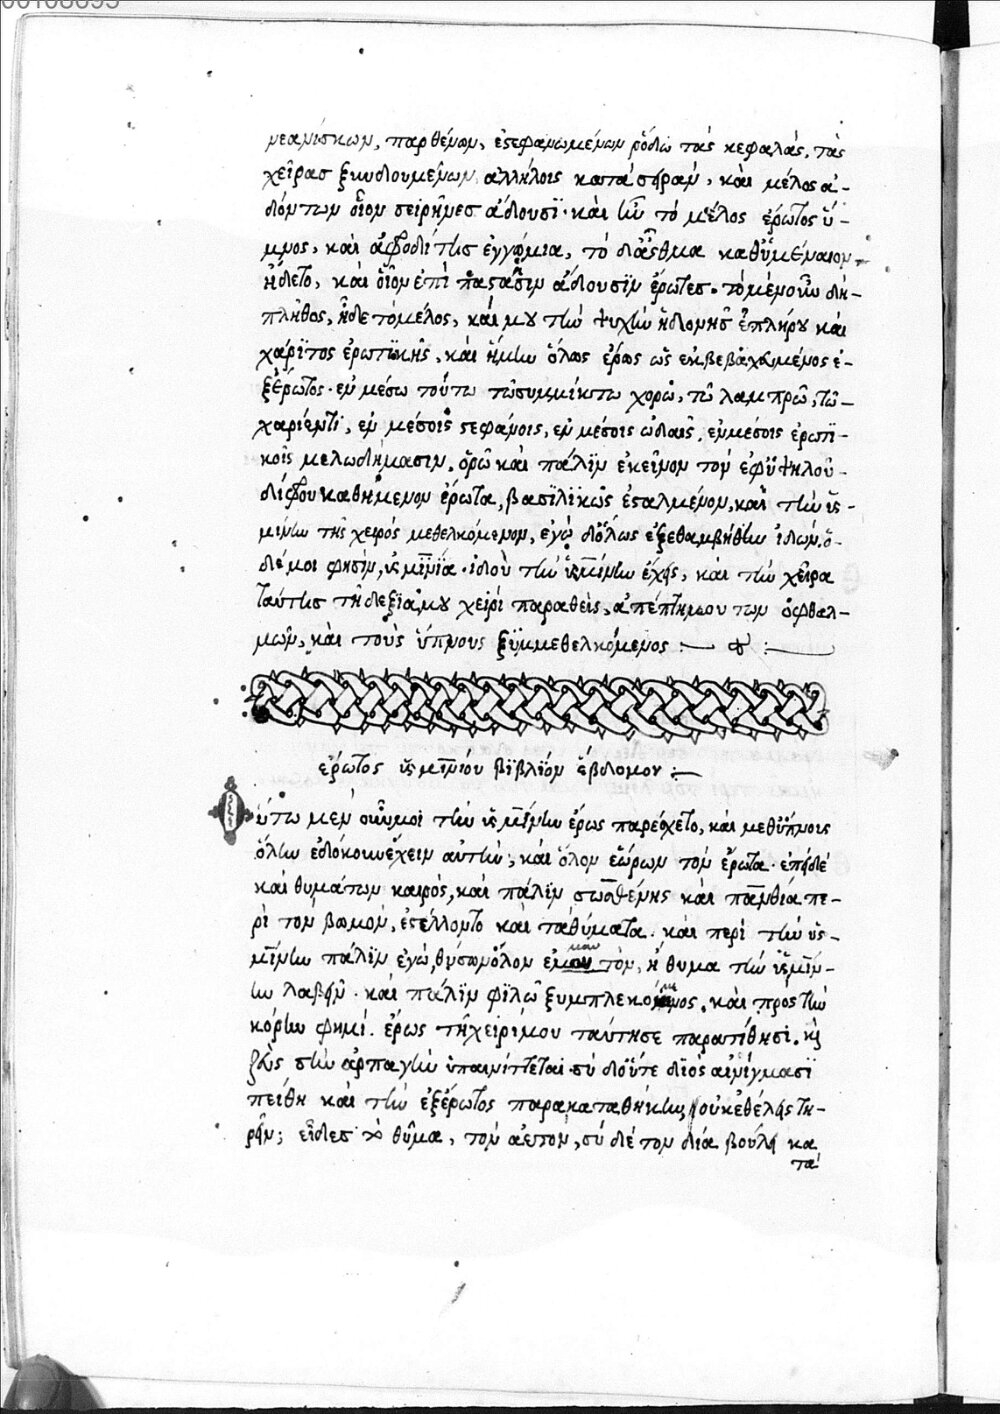 νεανίσκων, παρθένων, ἐστεφανωμένων ῥόδω τὰς κεφαλὰς, τὰς
χεῖρασ ξυνδουμένων ἀλλήλοις κατὰ σειρὰν, καὶ μέλος ἀ-
δόντων οἷον σειρῆνεσ ἄδουσι· καὶ ἦν τὸ μέλος ἔρωτος ὕ-
μνος, καὶ ἀφροδίτης ἐγγώμια, τὸ δᾶσθμα καθ' ὑμέναιον
ἤδετο, καὶ οἷον ἐπὶ παστάσιν ἄδουσιν ἔρωτεσ. τὸ μὲν οὖν δὴ
πλῆθος, ἦδε τὸ μέλος, καί μου τὴν ψυχὴν ἡδονῆς ἐπλήρου καὶ
χάριτος ἐρωτικῆς, καὶ ἤμην ὅλως ἔρως ὡς ἐκβεβακχωμένος ἐ-
ξἔρωτος· ἐν μέσω τούτω τῶ συμμίκτω χορῶ, τῶ λαμπρῶ, τῶ
χαρίεντι, ἐν μέσοις στεφάνοις, ἐν μέσοις ὠδαῖς, ἐν μέσοις ἐρωτι-
κοῖς μελωδήμασιν, ὁρῶ καὶ πάλιν ἐκεῖνον τὸν ἐφ' ὑψηλοῦ
δίφρου καθήμενον ἔρωτα, βασιλικῶς ἐσταλμένον, καὶ τὴν ὑσ-
μίνην τῆς χειρός μεθελκόμενον, ἐγὼ δ' ὅλως ἐξεθαμβήθην ἰδών, ὁ
δέ μοι φησὶν, ὑσμινία· ἰδοὺ τὴν ὑσμίνην ἔχεις, καὶ τὴν χεῖρα
ταύτης τῆ δεξιᾶ μου χειρὶ παραθεὶς, ἀπέπτη μου τῶν ὀφθαλ-
μῶν, καὶ τοὺς ὕπνους ξυμμεθελκόμενος :—
ἔρωτος ὑσμινίου βιβλίον ἕβδομον :—
Οὕτω μὲν οὖν μοι τὴν ὑσμίνην ἔρως παρέσχετο, καὶ μεθ' ὕπνοις
ὅλην ἐδόκουν ἔχειν αὐτὴν, καὶ ὅλον ἑώρων τὸν ἔρωτα· ἐπεὶ δὲ
καὶ θυμάτων καιρὸς, καὶ πάλιν σωσθένης καὶ πανθία πε-
ρὶ τὸν βωμὸν, ἐστέλλοντο καὶ τὰ θύματα. καὶ περὶ τὴν ὑσ-
μίνην πάλιν ἐγὼ, θύσων ὅλον ἐμαυτὸν, ἢ θῦμα τὴν ὑσμίν-
ην λαβεῖν· καὶ πάλιν φιλῶ ξυμπλεκόμενος, καὶ πρὸς τὴν
κόρην φημί. ἔρως τῆ χειρί μου ταύτη σε παρατίθησι. καὶ
ζεὺς σὴν ἁρπαγὴν ὑπαινίττεται· σὺ δ' οὔτε διὸς αἰνίγμασι
πείθη καὶ τὴν ἐξ ἔρωτος παρακαταθήκην, οὐκ ἐθέλεις τη-
ρεῖν; εἶδεσ τὸ θῦμα, τὸν ἀετὸν, σὺ δὲ τὸν δία βούλει κα
τὰ